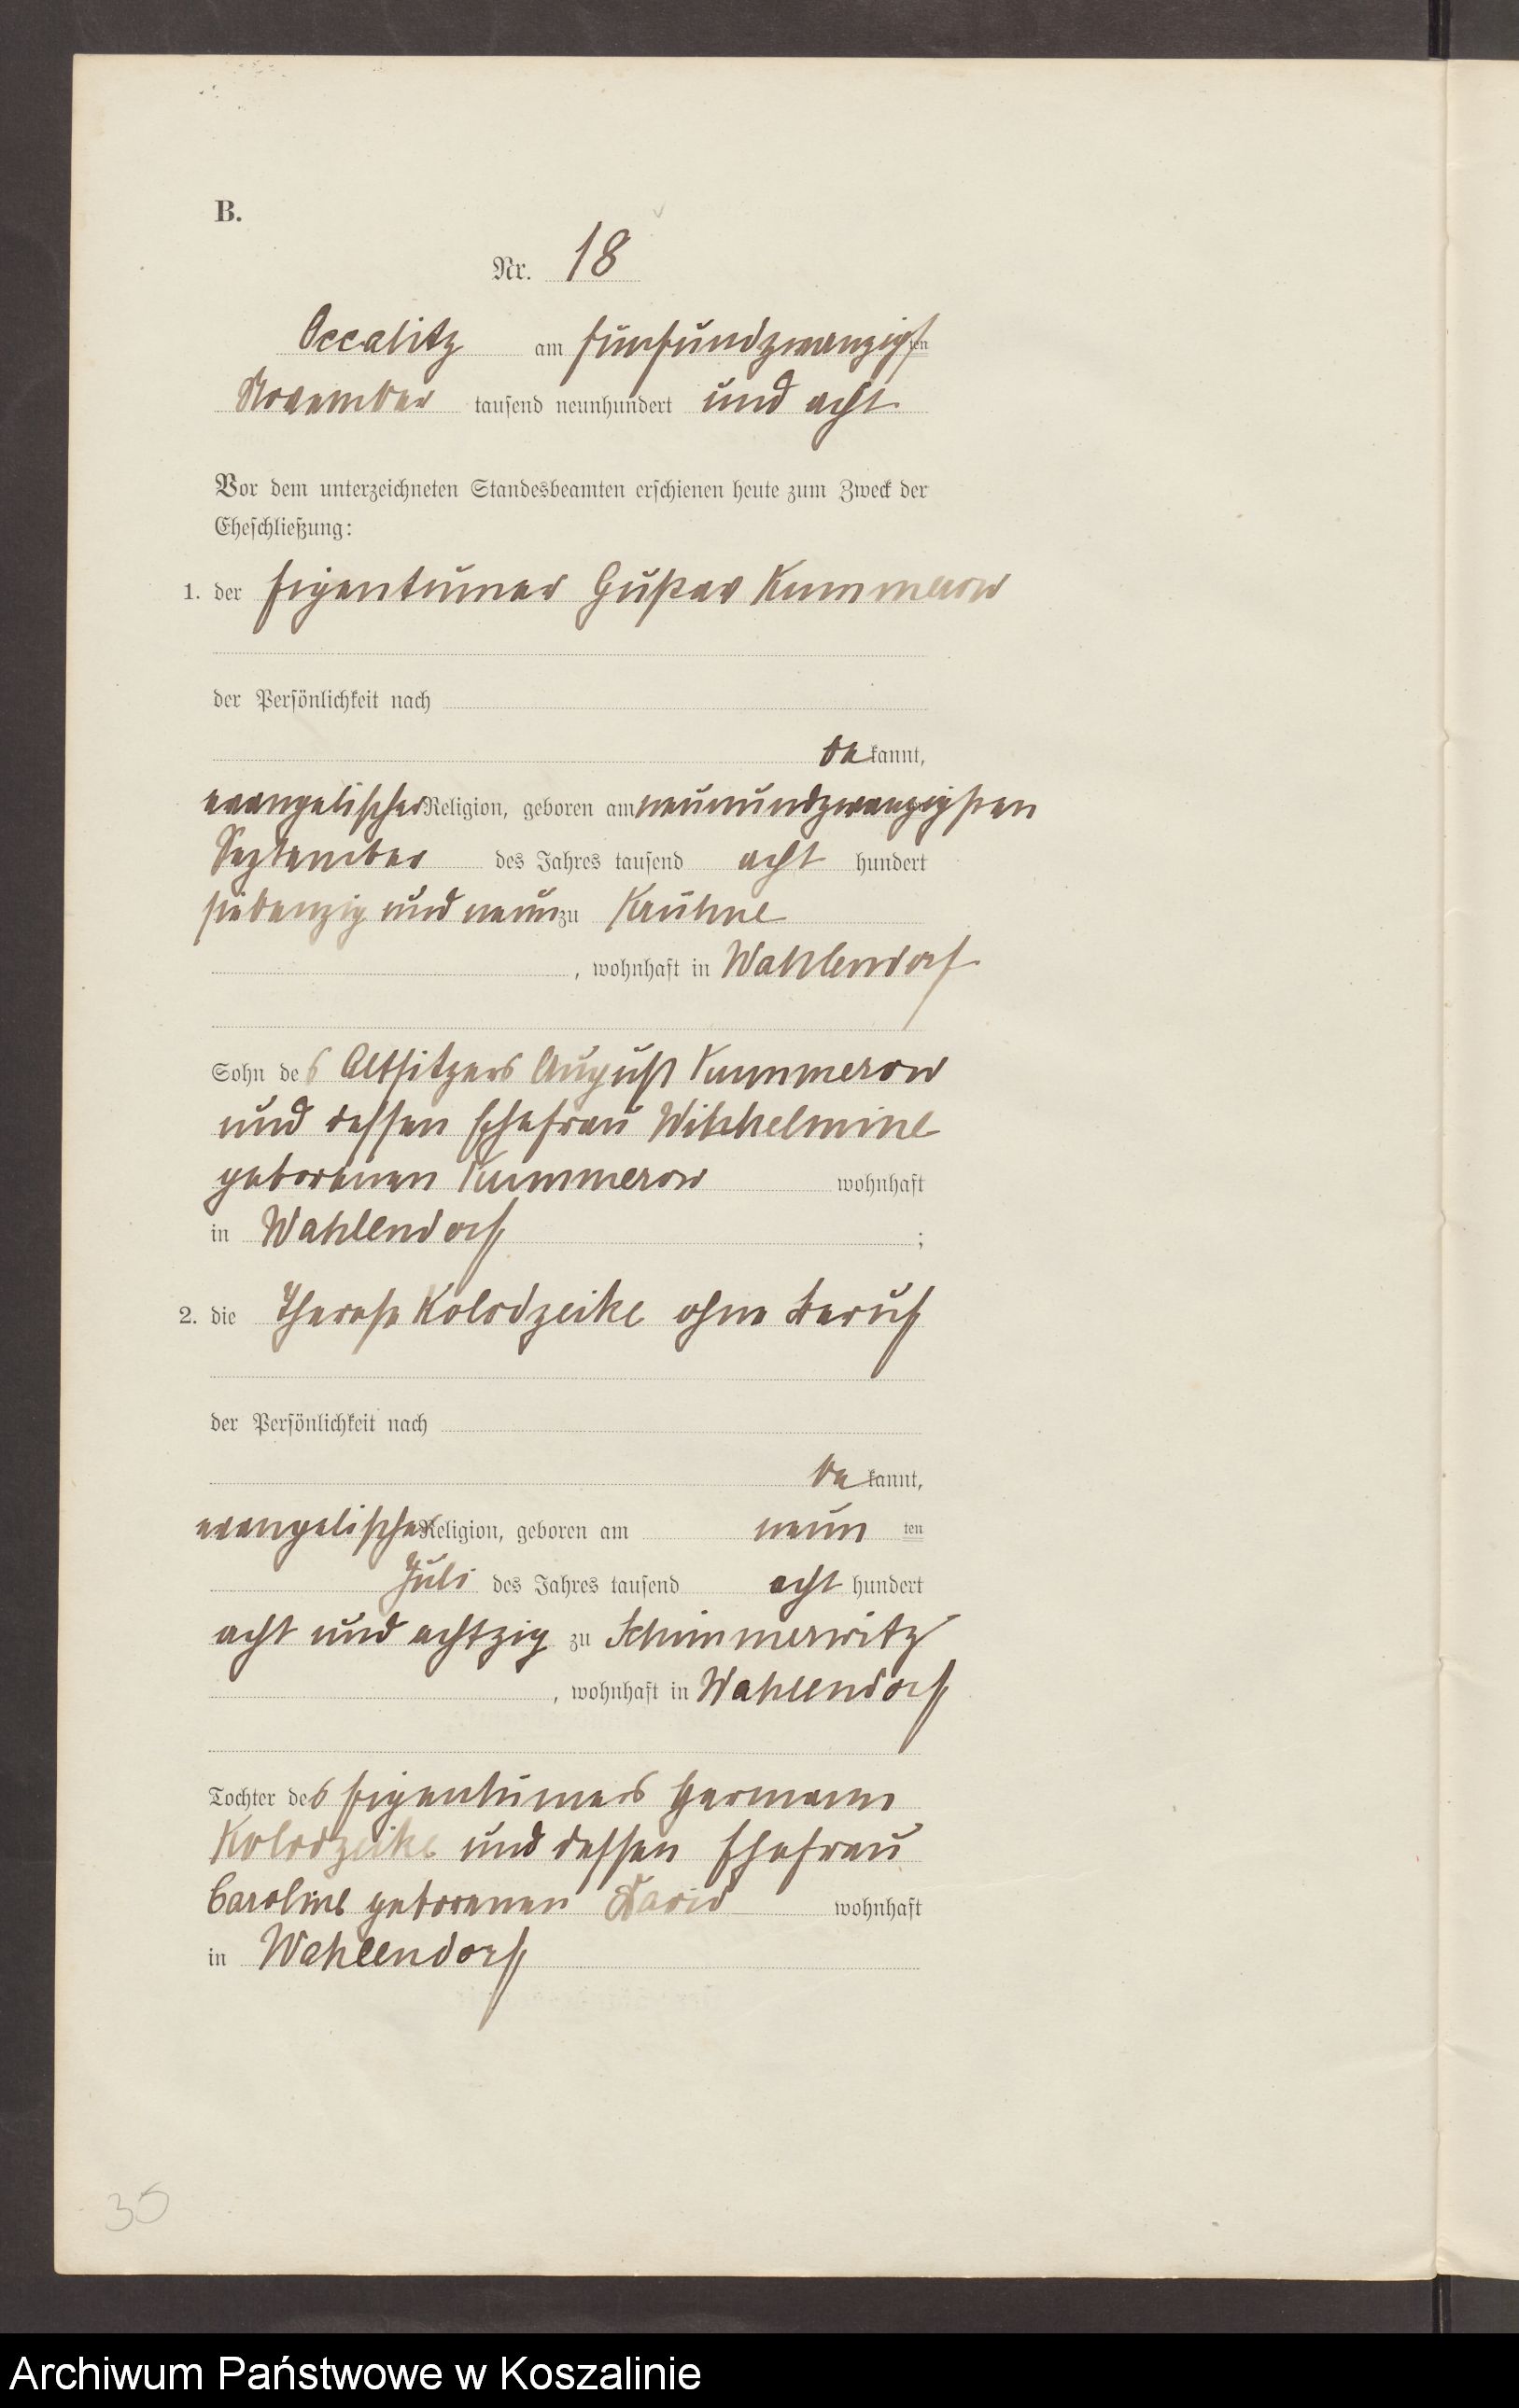 B.
Nr. 18
Occalitz am fünfundzwanzigsten
November tausend neunhundert und acht
Vor dem unterzeichneten Standesbeamten erschienen heute zum Zweck der
Eheschließung:
1. der Eigentümer Gustav Kummerow
der Persönlichkeit nach
be kannt,
evangelischer Religion, geboren am neunundzwanzigsten
September des Jahres tausend acht hundert
siebenzig und neun zu
, wohnhaft in Wahlendorf
Sohn des Altsitzers August Kummerow
und dessen Ehefrau Wilhelmine
geborenen Kummerow wohnhaft
in Wahlendorf ;
2. die Therese Kolodzeike ohne Beruf
der Persönlichkeit nach
be kannt,
evangelischer Religion, geboren am neun ten
Juli des Jahres tausend acht hundert
acht und achtzig zu Schimmerwitz
, wohnhaft in Wahlendorf
Tochter des Eigentümers Hermann
Kolodzeike und dessen Ehefrau
Caroline geborenen David wohnhaft
in Wahlendorf
35
Archiwum Państwowe w Koszalinie